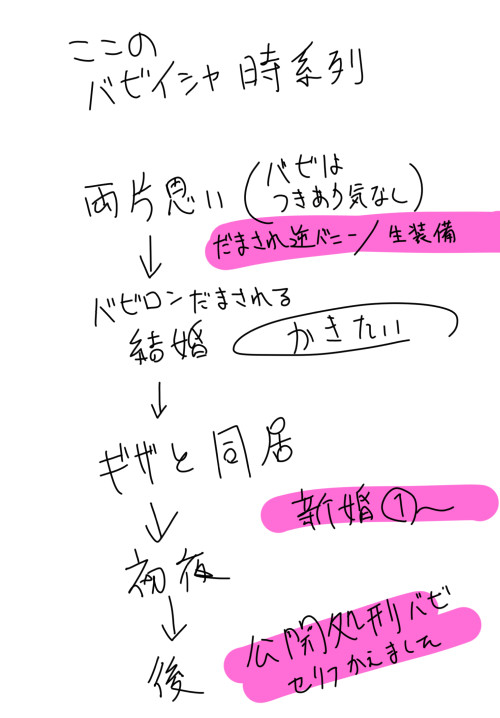 ここの
バゼイシャ時系列
両片思い(バゼは
つきあう気なし)
だまされ逆バニー/生装備
バビロンだまされる
結婚 かきたい
↓
ギザと同居
新婚①〜
↓
初夜
↓
後
公開処刑バゼ
セリフかえました